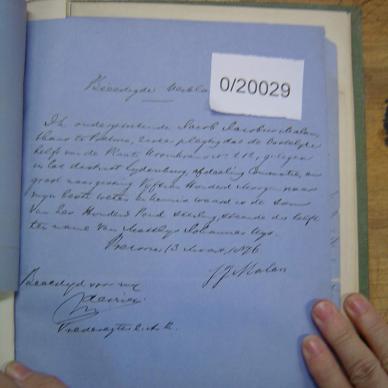 Beëedigde Verkla
0/20029
Ik ondergeteekende Jacob Jacobus Malan,
thans te Pretoria, verklaar dat de Oostelijke
helft van de Plaats No 212, gelegen
in het district Lydenburg, Afdeeling
groot naar gissing Vyftien Honderd Morgen naar
myn beste weten en kennis waard is de som
Van Zes Honderd Pond Sterling, staande die helft
ten name Van Matthys Johannes
Pretoria 13 Maart 1876
JJ Malan
Beëedigd voor my
Vrederegter